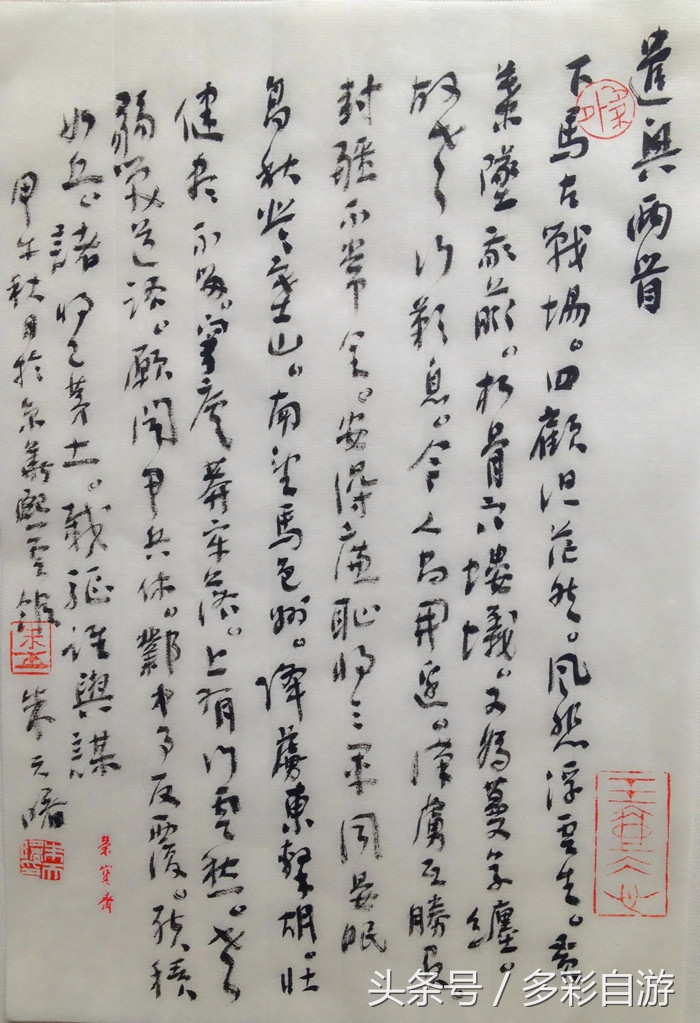 遣興兩首
下馬古戰場。四顧但茫然。風悲浮雲去。黄
葉墜我前。朽骨穴螻蟻。又為蔓草纏。
故老行歎息。今人尚開邊。漢虜互勝負。
封疆不常全。安得廉恥將三軍同晏眠
高秋登寒山。南望馬邑州。降虜東擊胡。壯
健盡不留。穹廬莽牢落。上有行雲愁。老
弱哭道路。願聞甲兵休。鄴中事反覆。積
如丘。諸將已茅土。載驅誰與謀
甲午秋月於京華雲館 朱天曙
榮寶齋
头条号/多彩自游